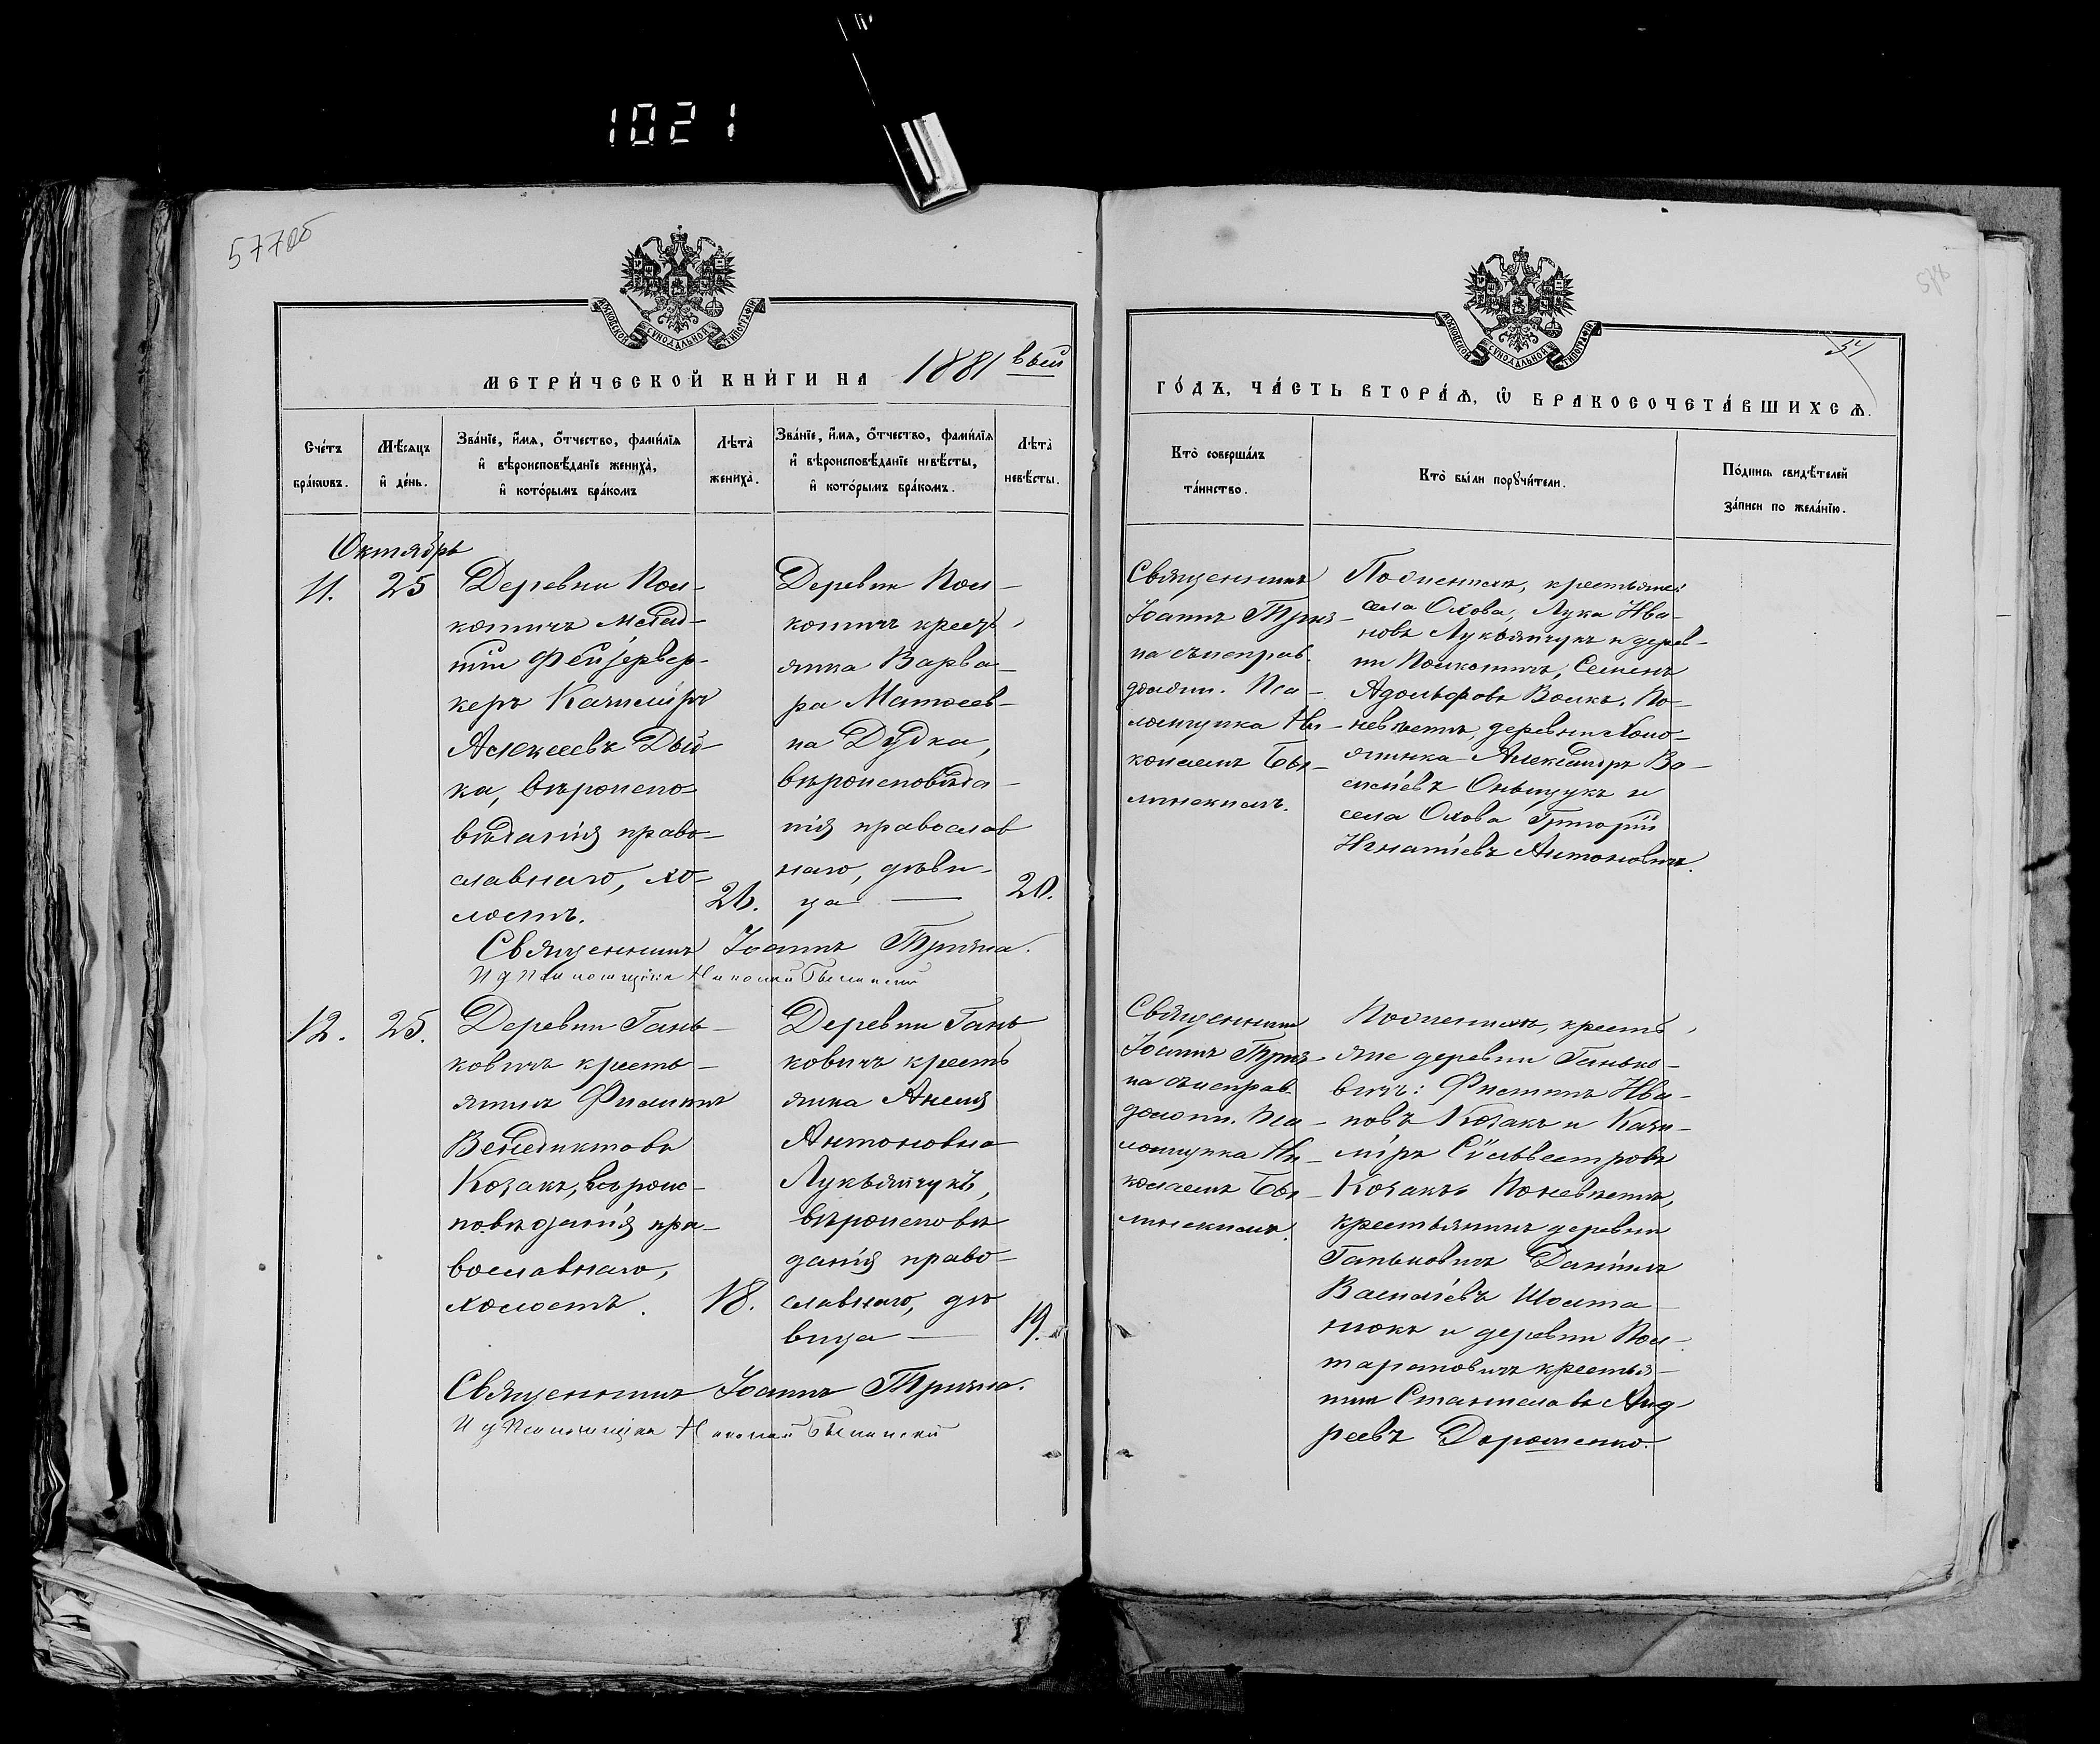 1021
577об
МОСКОВСКОЙ СѴНОДАЛЬНОЙ ТИПОГРАФІИ
МЕТРИ́ЧЕСКОЙ КНИ́ГИ НА 1881 вый
Сче́тъ бра́кωвъ.
Мѣ́сяцъ и҆ де́нь.
Зва́нїе, и҆́мѧ, ѻ҆́тчество, фамı́лїѧ
и҆ вѣроисповѣ́данїе жениха̀,
и҆ кото́рымъ бра́комъ
Лѣ́та̀ жениха̀.
Зва́нїе, и҆́мѧ, ѻ҆́тчество, фамı́лїѧ
и҆ вѣроисповѣ́данїе невѣ́сты,
и҆ кото́рымъ бра́комъ.
Лѣ́та̀ невѣ́сты.
Октябрь
11.
25
Деревни Пол-
котичъ Млад-
шій Фейервер-
керъ Казиміръ
Алексѣевъ Дый-
ка, вѣроиспо-
вѣданія право-
славнаго, хо-
лостъ.
26.
Деревни Пол-
котичъ кресть-
янка Варва-
ра Матѳеев-
на Дудка,
вѣроисповѣда-
нія православ
наго, дѣви-
ца —
20.
Священникъ Іоаннъ Тризна.
И д Псаломщика Николай Былинскій
12.
25.
Деревни Гань-
ковичъ кресть-
янинъ Филиппъ
Венедиктовъ
Козакъ, вѣроис-
повѣданія пра-
вославнаго,
холостъ.
18.
Деревни Гань
ковичъ кресть
янка Анелія
Антоновна
Лукьянчукъ,
вѣроисповѣ
данія право-
славнаго, дѣ
вица —
19.
Священникъ Іоаннъ Тризна.
И д Псаломщика Николай Былинскій
578
МОСКОВСКОЙ СѴНОДАЛЬНОЙ ТИПОГРАФІИ
ГО́ДЪ, ЧА́СТЬ ВТОРА́Ѧ, Ѡ҆ БРАКОСОЧЕТА́ВШИХСѦ.
Кто̀ соверша́лъ
та́инство.
Кто̀ бы́ли порꙋчи́тели.
По́дпись свидѣ́телей
за́писи по жела́нїю.
Священникъ
Іоаннъ Триз-
на съ исправ.
должн. Пса-
ломщика Ни-
колаемъ Бы-
линскимъ.
По женихѣ, крестьяне:
села Охова, Лука Ива-
новъ Лукьянчукъ и дерев-
ни Полкотичъ, Семенъ
Адольфовъ Волкъ. По
невѣстѣ, деревни
Александръ Ва-
сильевъ и
села Охова Григорій
Игнатіевъ Антоновичъ.
Священникъ
Іоаннъ Триз-
на съ исправ.
должн. Пса-
ломщика Ни-
колаемъ Бы-
линскимъ.
По женихѣ, кресть-
яне деревни Ганько-
вичъ: Филиппъ Ива-
новъ Козакъ и Кази-
міръ Сильвестровъ
Козакъ. По невѣстѣ,
крестьянинъ деревни
Ганьковичъ Даніилъ
Василіевъ Шолта-
нюкъ и деревни Пол-
тарановичъ крестья-
нинъ Станиславъ Анд-
реевъ Дорошенко.